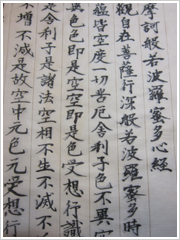 摩訶般若波羅蜜多心経
觀自在菩薩行深般若波羅蜜多時
蘊皆空度一切苦厄舍利子色不異空
異色色即是空空即是色受想行識
是舍利子是諸法空相不生不滅不
不增不減是故空中无色无受想行